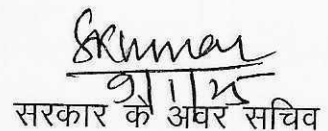 SKumar
9/1/25
सरकार के अवर सचिव